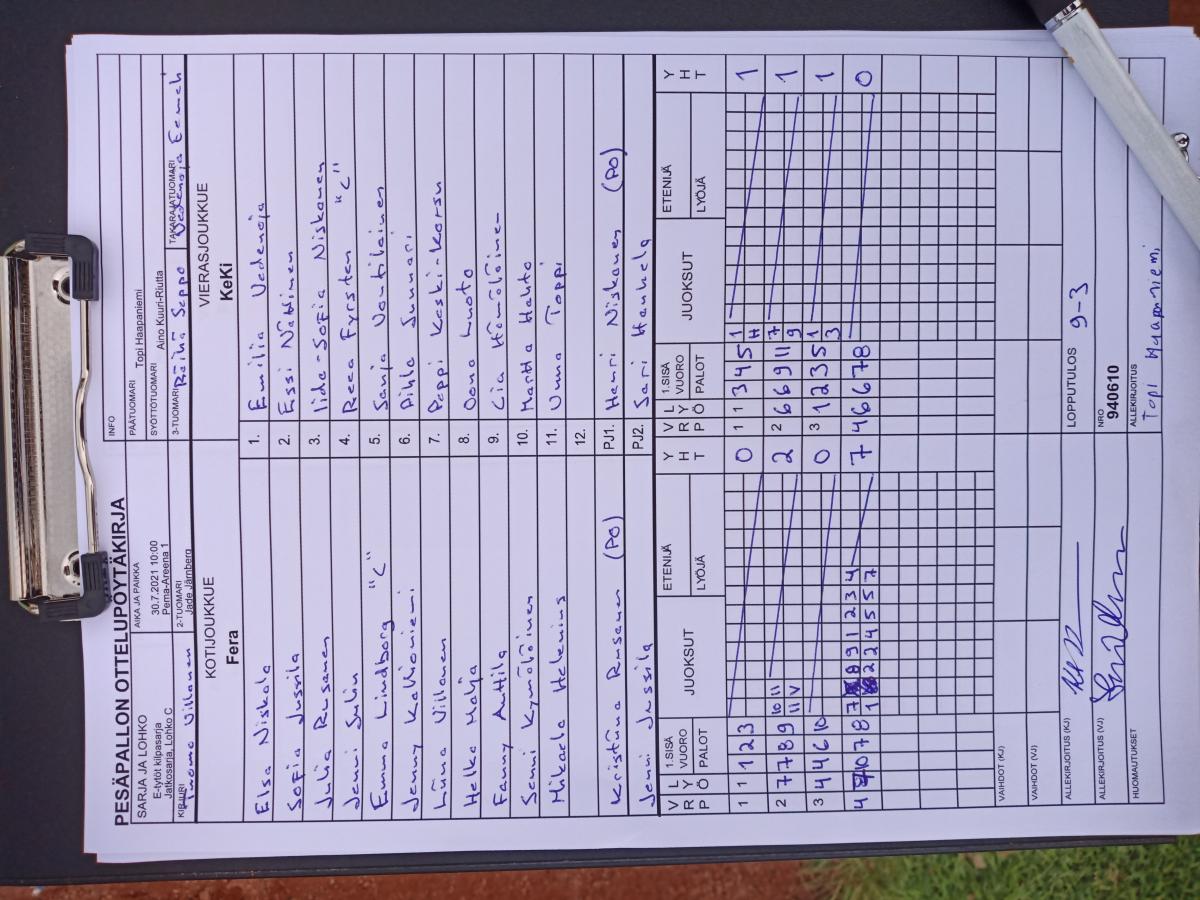 PESÄPALLON OTTELUPÖYTÄKIRJA
SARJA JA LOHKO
E-tytöt kilpasarja
Jatkosarja, Lohko C
AIKA JA PAIKKA
30.7.2021 10:00
Pema-Areena 1
INFO
PÄÄTUOMARI Topi Haapaniemi
SYÖTTÖTUOMARI Aino Kuuri-Riutta
KIRJURI Tuomo Villanen
2-TUOMARI Jade Järnberg
3-TUOMARI Räihä Seppo
TAKARAJATUOMARI Vedenoja Eemeli
KOTIJOUKKUE
Fera
VIERASJOUKKUE
KeKi
Elsa Niskala 1. Emilia Vedenoja
Sofia Jussila 2. Essi Näätinen
Julia Rusanen 3. Iida-Sofia Niskanen
Jenni Sulin 4. Reea Fyrsten "C"
Emma Lindborg "C" 5. Sanja Voutilainen
Jenny Kallioniemi 6. Pihla Junnari
Liina Villanen 7. Peppi Keski-Karsu
Helka Malja 8. Oona Luoto
Fanny Anttila 9. Lia Hämäläinen
Senni Kymäläinen 10. Martta Hahto
Mikaela Helenius 11. Unna Toppi
12.
Kristiina Rusanen (PO) PJ1. Harri Niskanen (PO)
Jenni Jussila PJ2. Sari Hanhela
V R P L Y Ö 1.SISÄ VUORO PALOT JUOKSUT ETENIJÄ LYÖJÄ Y H T V R P L Y Ö 1.SISÄ VUORO PALOT JUOKSUT ETENIJÄ LYÖJÄ Y H T
1 1 1 2 3 0 1 1 3 4 5 1 H 1
2 7 7 8 9 10 11 11 V 2 2 6 6 9 11 7 9 1
3 4 4 6 10 0 3 1 2 3 5 1 3 1
4 10 7 8 7 8 9 1 2 3 4 1 2 2 4 5 5 7 7 4 6 6 7 8 0
VAIHDOT (KJ)
VAIHDOT (VJ)
ALLEKIRJOITUS (KJ)
LOPPUTULOS 9-3
ALLEKIRJOITUS (VJ)
NRO
940610
HUOMAUTUKSET
ALLEKIRJOITUS
Topi Haapaniemi